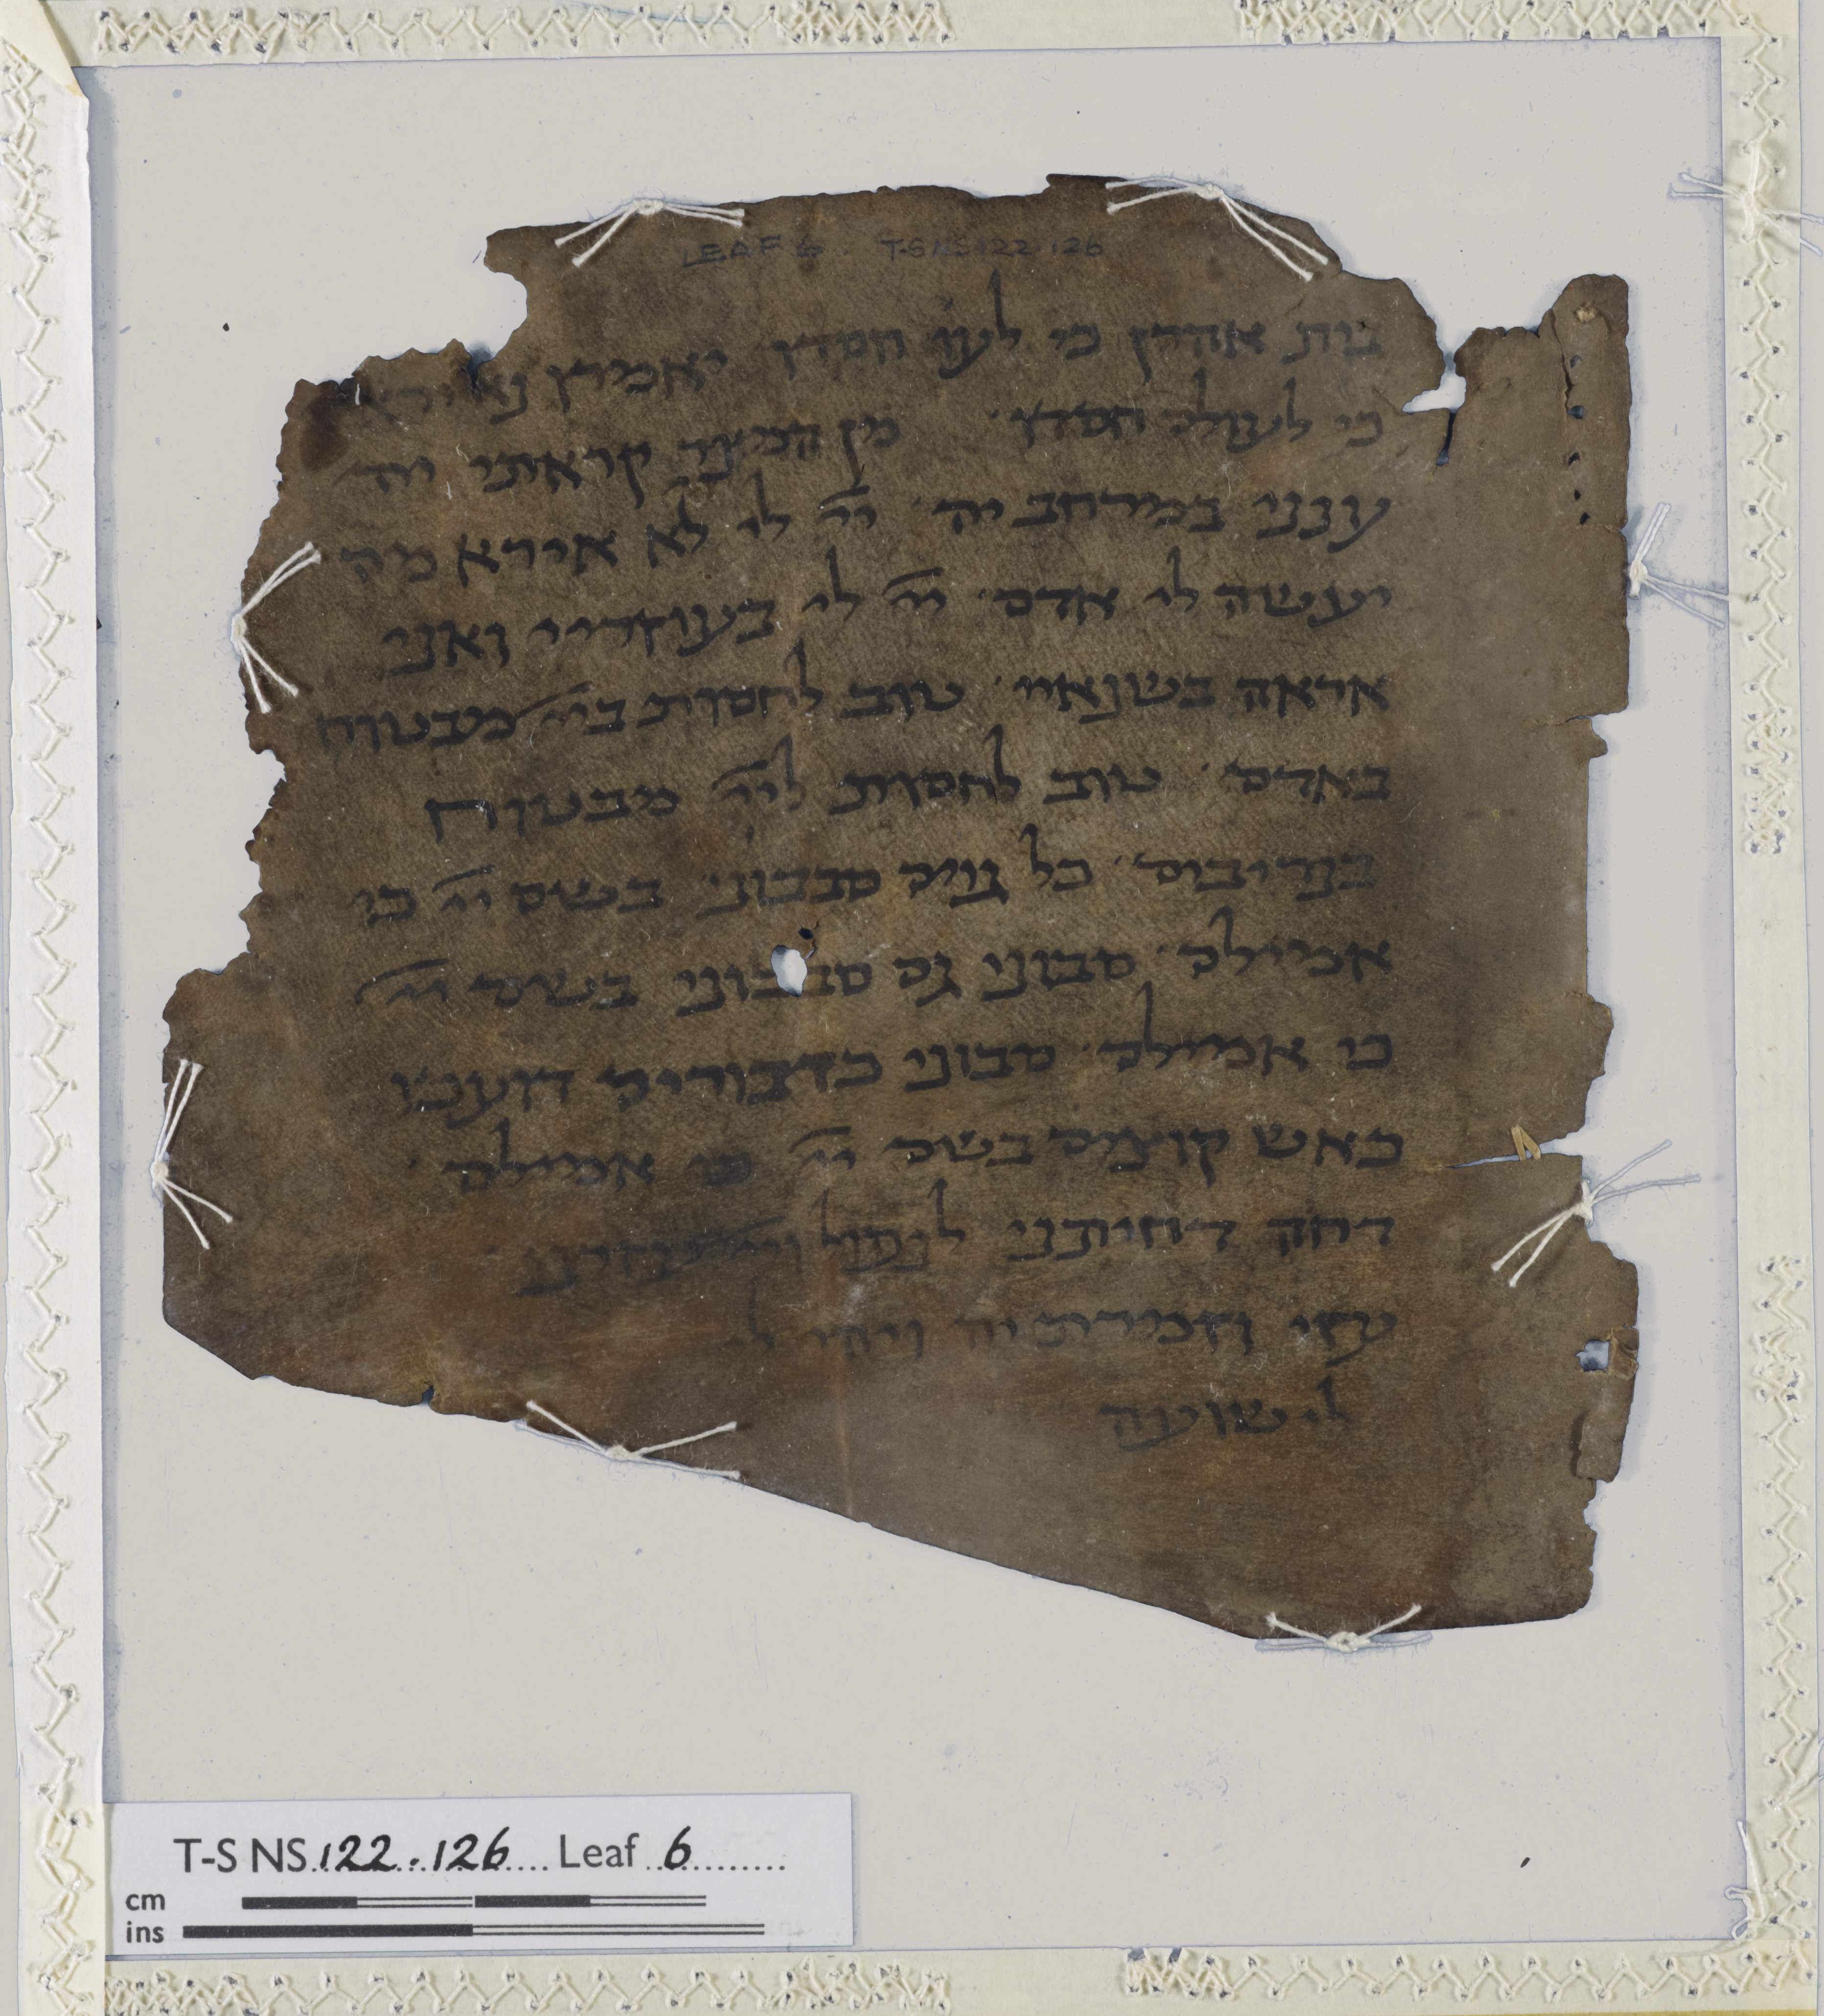 LEAF 6 T-S NS 122.126
בית אהרן כי לעו׳ חסדו׳ יאמרו נא יראי
כי לעולם חסדו׳ מן המצר קראתי יה׳
ענני במרחב יה׳ ייי לי לא אירא מה
יעשה לי אדם׳ ייי לי בעוזריי ואני
אראה בשנאיי׳ טוב לחסות בייי מבטוח
באדם׳ טוב לחסות בייי מבטוח
בנדיבים׳ כל גוים סבבוני בשם ייי כי
אמילם׳ סבוני גם סבבוני בשם ייי
כי אמילם׳ סבוני כדבורים דועכו
כאש קוצים בשם ייי כי אמילם׳
דחה דחיתני לנפול וייי עזרני
עזי וזמרת יה ויהי לי
לישועה
T-S NS 122.126 Leaf 6
cm
ins